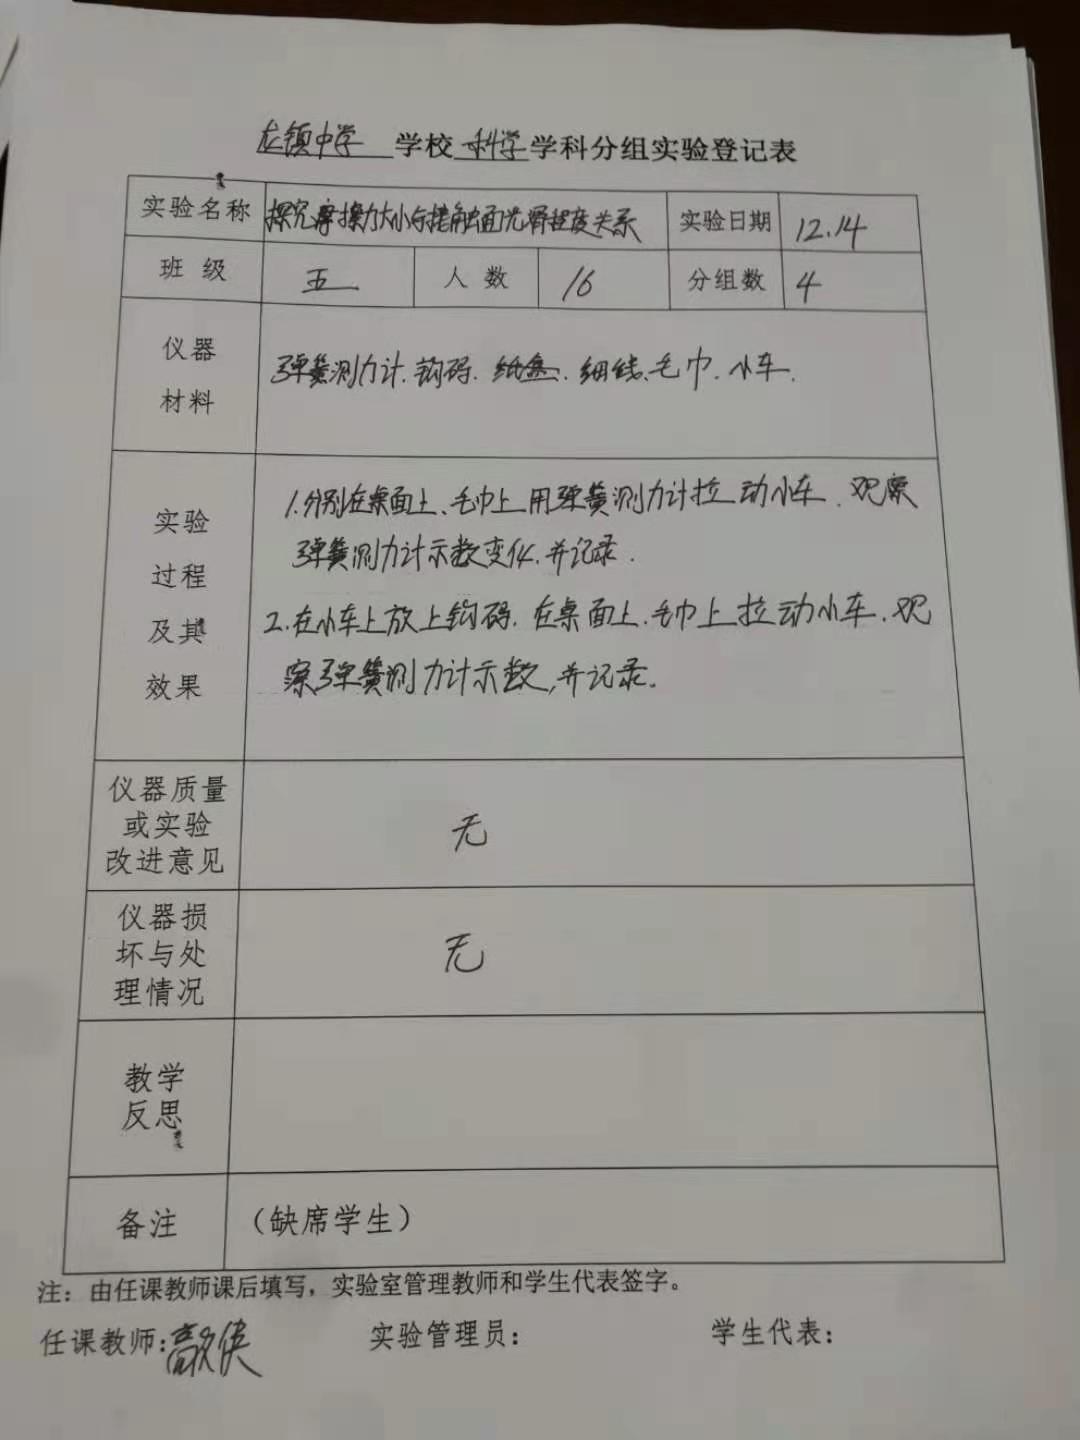 龙镇中学 学校 科学 学科分组实验登记表
实验名称 探究摩擦力大小与接触面光滑程度关系 实验日期 12.14
班级 五 人数 16 分组数 4
仪器
材料
弹簧测力计.钩码.纸盒.细线.毛巾.小车.
实验
过程
及其
效果
1.分别在桌面上、毛巾上用弹簧测力计拉动小车.观察
弹簧测力计示数变化.并记录.
2.在小车上放上钩码.在桌面上.毛巾上拉动小车.观
察弹簧测力计示数,并记录.
仪器质量
或实验
改进意见
无
仪器损
坏与处
理情况
无
教学
反思
备注 (缺席学生)
注:由任课教师课后填写,实验室管理教师和学生代表签字。
任课教师: 实验管理员: 学生代表: